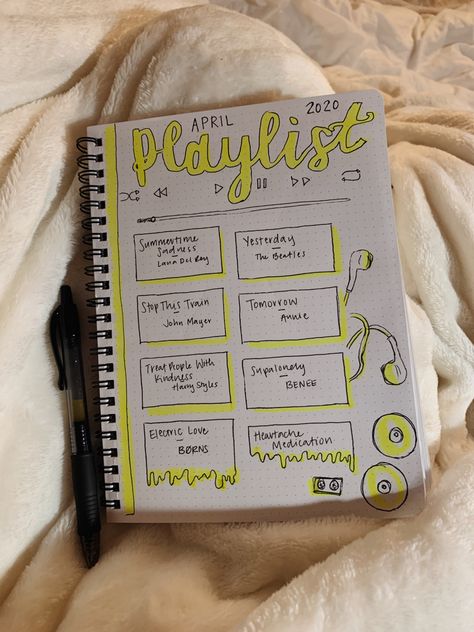 APRIL
2020
Playlist
Summertime
Sadness
Lana Del Rey
Yesterday
The Beatles
Stop This Train
John Mayer
Tomorrow
Annie
Treat People With
Kindness
Harry Styles
Supalonely
BENEE
Electric Love
BØRNS
Heartache
Medication